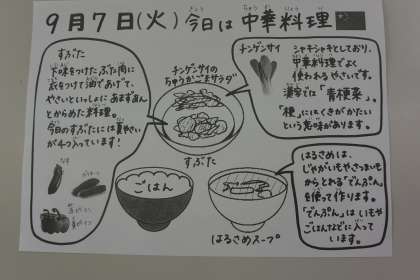 9月7日(火) 今日は 中華料理
きょう
ちゅうかりょうり
すぶた
下味をつけたぶた肉に
衣をつけて油であげて、
やさいといっしょに あまずあん
とからめた料理。
今日のすぶたには夏やさい
が4つ入っています!
なす
チンゲンサイの
ちゅうかごまサラダ
すぶた
ごはん
はるさめスープ
チンゲンサイ
シャキシャキとしており、
中華料理でよく
使われるやさいです。
漢字では「青梗菜」。
「梗」にはくきがかたい
という意味があります。
はるさめは、
じゃがいもやさつまいも
からとれる「でんぷん」
を使って作ります。
「でんぷん」は いもや
ごはんなどに入って
います。